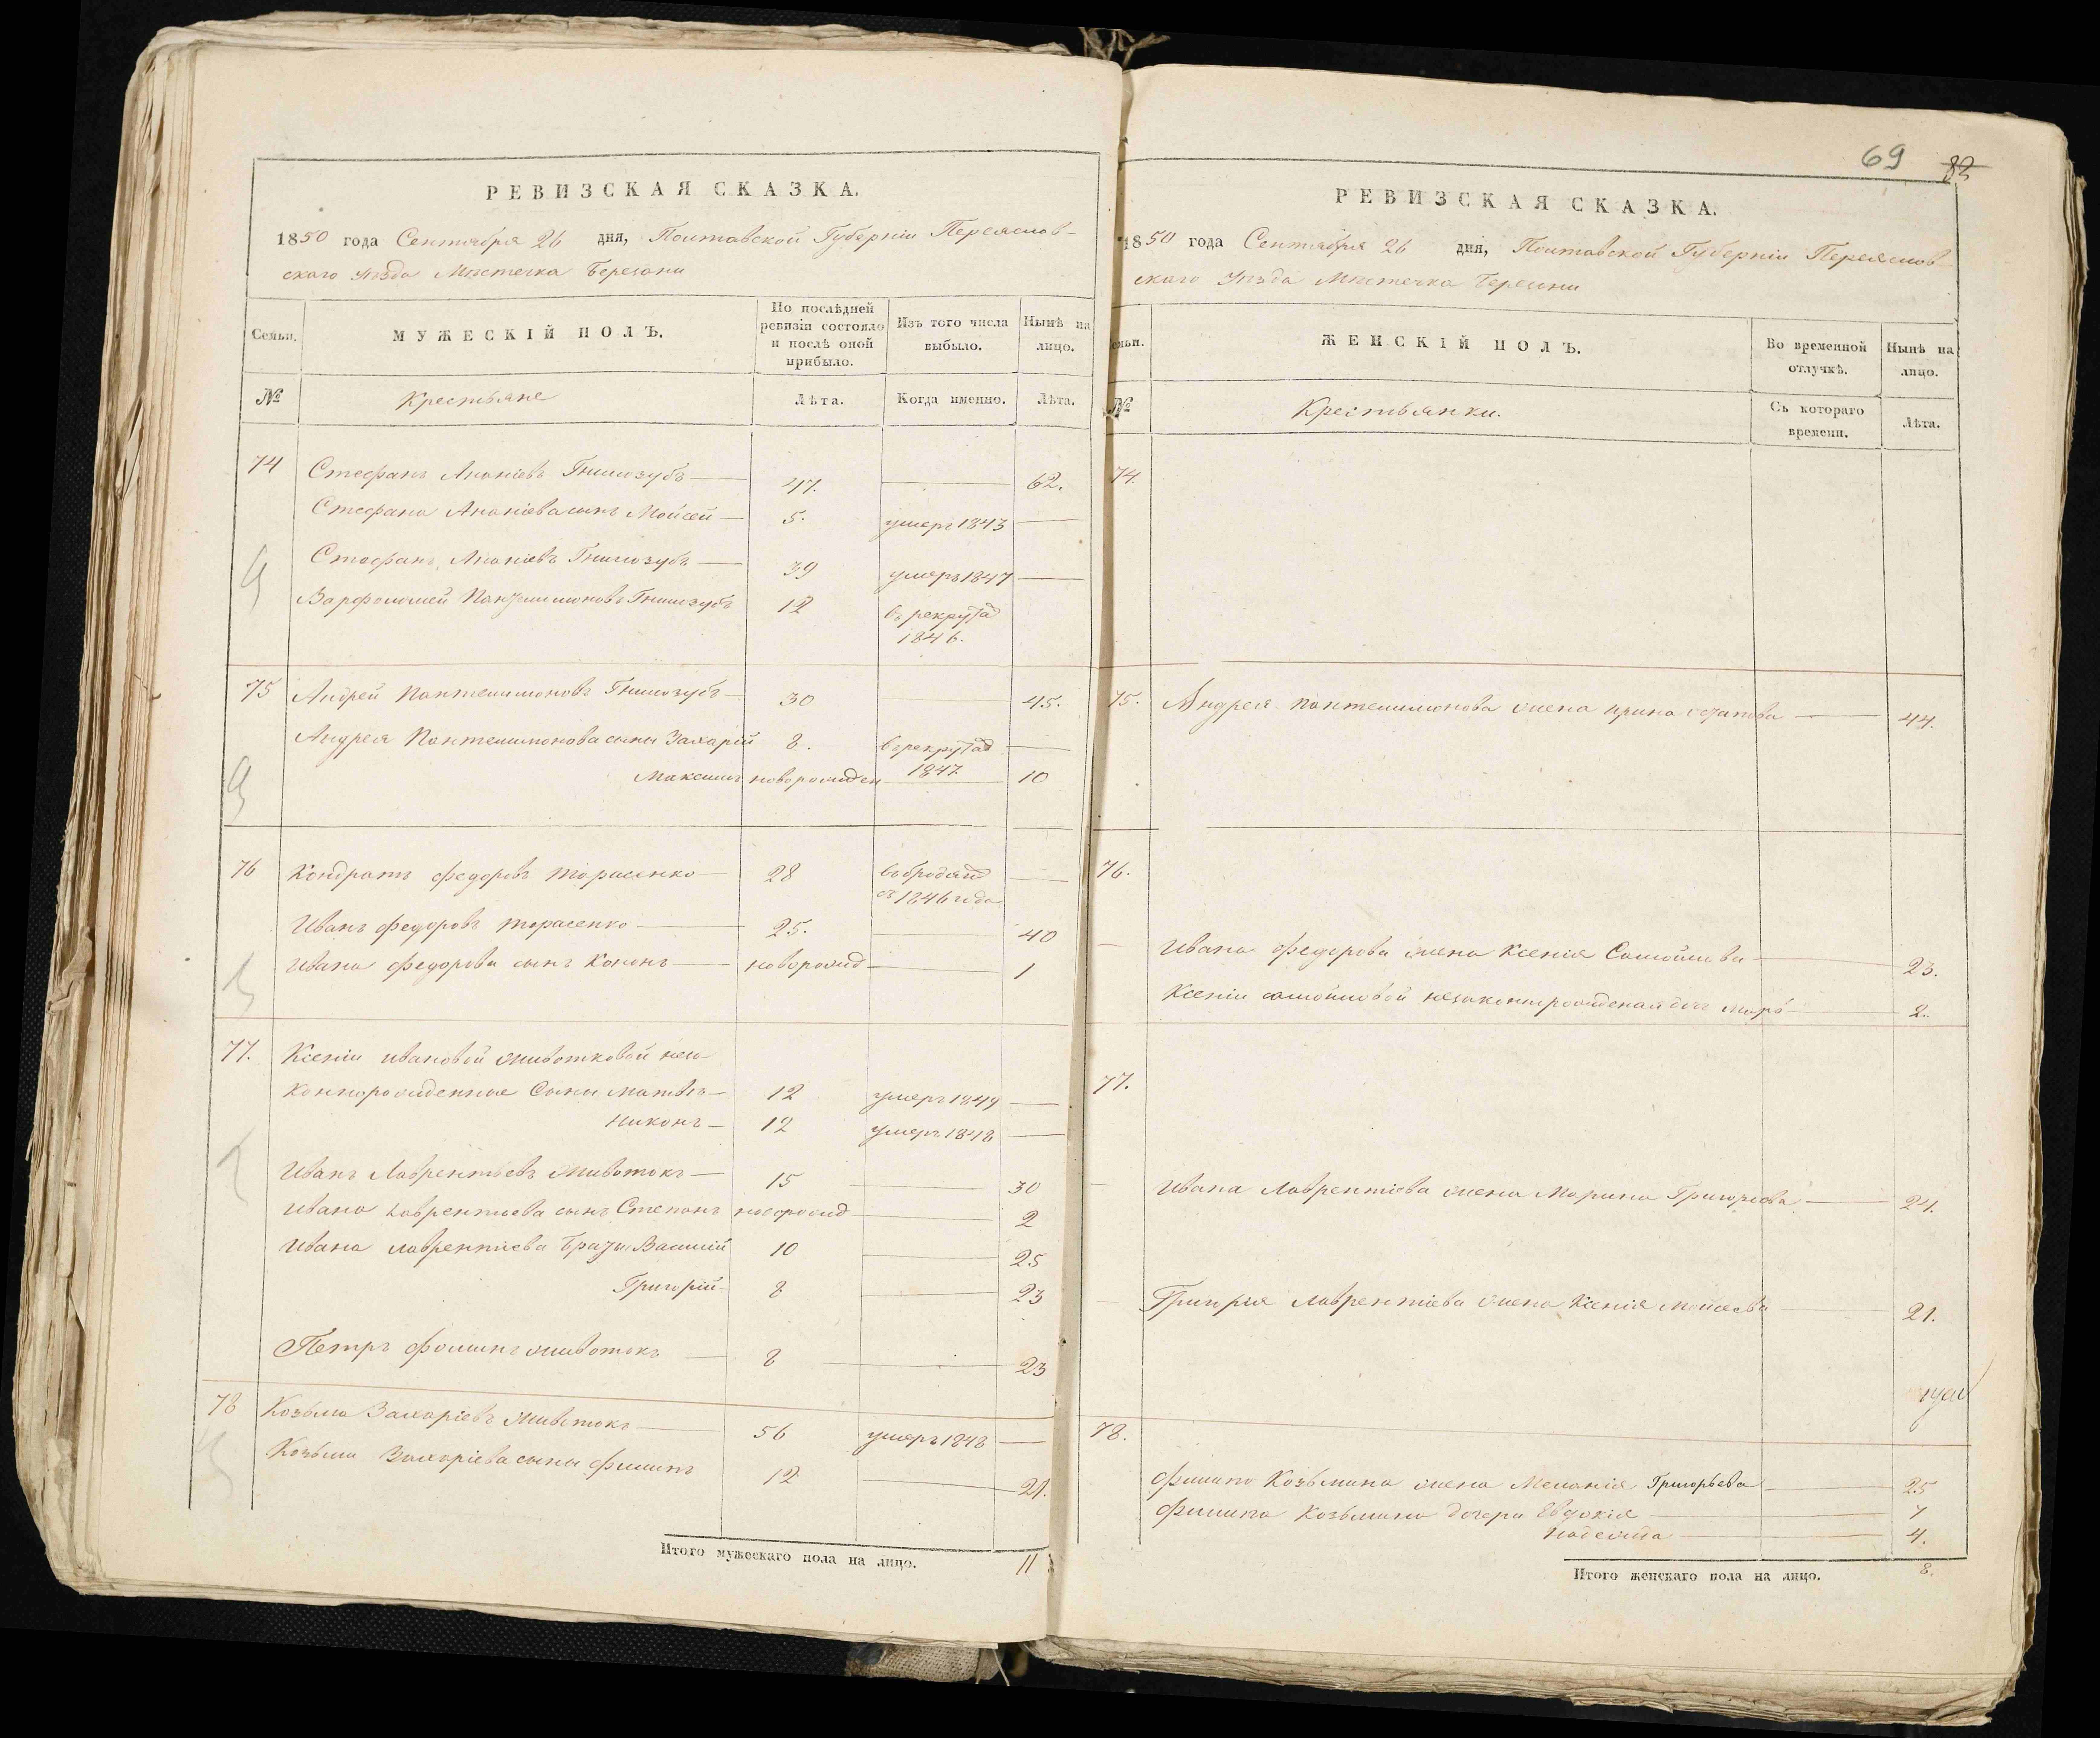 69 82
РЕВИЗСКАЯ СКАЗКА.
1850 года Сентября 26 дня, Полтавской Губерніи Переяслов-
скаго уѣзда Мѣстечка Березани
Семьи. МУЖЕСКІЙ ПОЛЪ. По послѣдней ревизіи состояло и послѣ оной прибыло. Изъ того числа выбыло. Нынѣ на лицо.
№ Крестьяне Лѣта. Когда именно. Лѣта.
74 Стефанъ Ананіевъ Гнилозубъ 47. 62.
Стефана Ананіева сынъ Мойсей 5. умеръ 1843
Стефанъ Ананіевъ Гнилозубъ 39 умеръ 1847
Варфоломей Пантелимоновъ Гнилозубъ 12 въ рекрутах
1846.
75 Андрей Пантелимоновъ Гнилозубъ 30 45.
Андрея Пантелимонова сыны Захарій 8. в рекрутах
1847
Максимъ новорожден 10
76 Кондратъ Федоровъ Тарасенко 28 въ бродягах
съ 1846 года
Иванъ Федоровъ Тарасенко 25. 40
Ивана Федорова сынъ Кононъ новорожд 1
77. Ксеніи Ивановой Животковой неза
коннорожденные Сыны Матвѣй 12 умеръ 1849
Никонъ 12 умеръ 1848
Иванъ Лаврентьевъ Животокъ 15 30
Ивана Лаврентьева сынъ Степанъ новорожд 2
Ивана Лаврентіева Браты Василій 10 25
Григорій 8 23
Петръ Фоминъ Животокъ 8 23
78 Козьма Захаріевъ Животокъ 56 умеръ 1848
Козьмы Захаріева сыны Филипъ 12 21.
Итого мужескаго пола на лицо. 11
РЕВИЗСКАЯ СКАЗКА.
1850 года Сентября 26 дня, Полтавской Губерніи Переяслов
скаго Уѣзда Мѣстечка Березани
Семьи. ЖЕНСКІЙ ПОЛЪ. Во временной отлучкѣ. Нынѣ на лицо.
№ Крестьянки. Съ котораго времени. Лѣта.
74.
75. Андрея Пантелимонова жена Ирина 44.
76.
Ивана Федорова жена Ксенія Самойлова 23.
Ксеніи Самойловой незаконнорожденая доч 2.
77.
Ивана Лаврентіева жена Марина Григорьева 24.
Григорія Лаврентіева жена Ксенія Мойсеева 21.
78.
Филипа Козьмина жена Меланія Григорьева 25
Филипа Козьмина дочери Евдокія 7
Надежда 4.
Итого женскаго пола на лицо. 8.